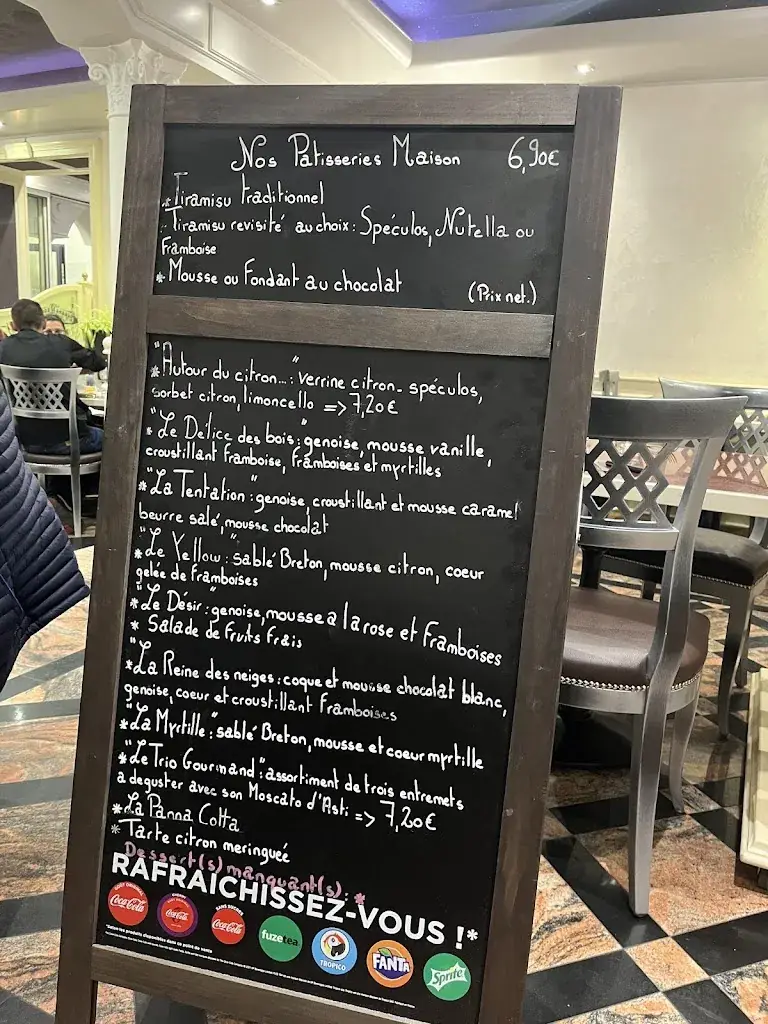 Nos Patisseries Maison 6,90€
* Tiramisu traditionnel
* Tiramisu revisité au choix: Spéculos, Nutella ou
Framboise
* Mousse ou Fondant au chocolat (Prix net.)
* "Autour du citron...": verrine citron_ spéculos,
sorbet citron, limoncello => 7,20€
* "Le Délice des bois": genoise, mousse vanille,
croustillant framboise, framboises et myrtilles
* "La Tentation": genoise, croustillant et mousse caramel
beurre salé, mousse chocolat
* "Le Yellow": sablé Breton, mousse citron, coeur
gelée de framboises
* "Le Désir": genoise, mousse a la rose et framboises
* Salade de fruits frais
* "La Reine des neiges: coque et mousse chocolat blanc,
genoise, coeur et croustillant Framboises
* "La Myrtille": sablé Breton, mousse et coeur myrtille
* "Le Trio Gourmand": assortiment de trois entremets
a deguster avec son Moscato d'Asti => 7,20€
* La Panna Cotta
* Tarte citron meringueé
Dessert(s) manquant(s): *
RAFRAICHISSEZ-VOUS !*
Coca-Cola
Coca-Cola
SANS SUCRES
Coca-Cola
fuzetea
TROPICO
FANTA
Sprite
*Selon les produits disponibles dans ce point de vente